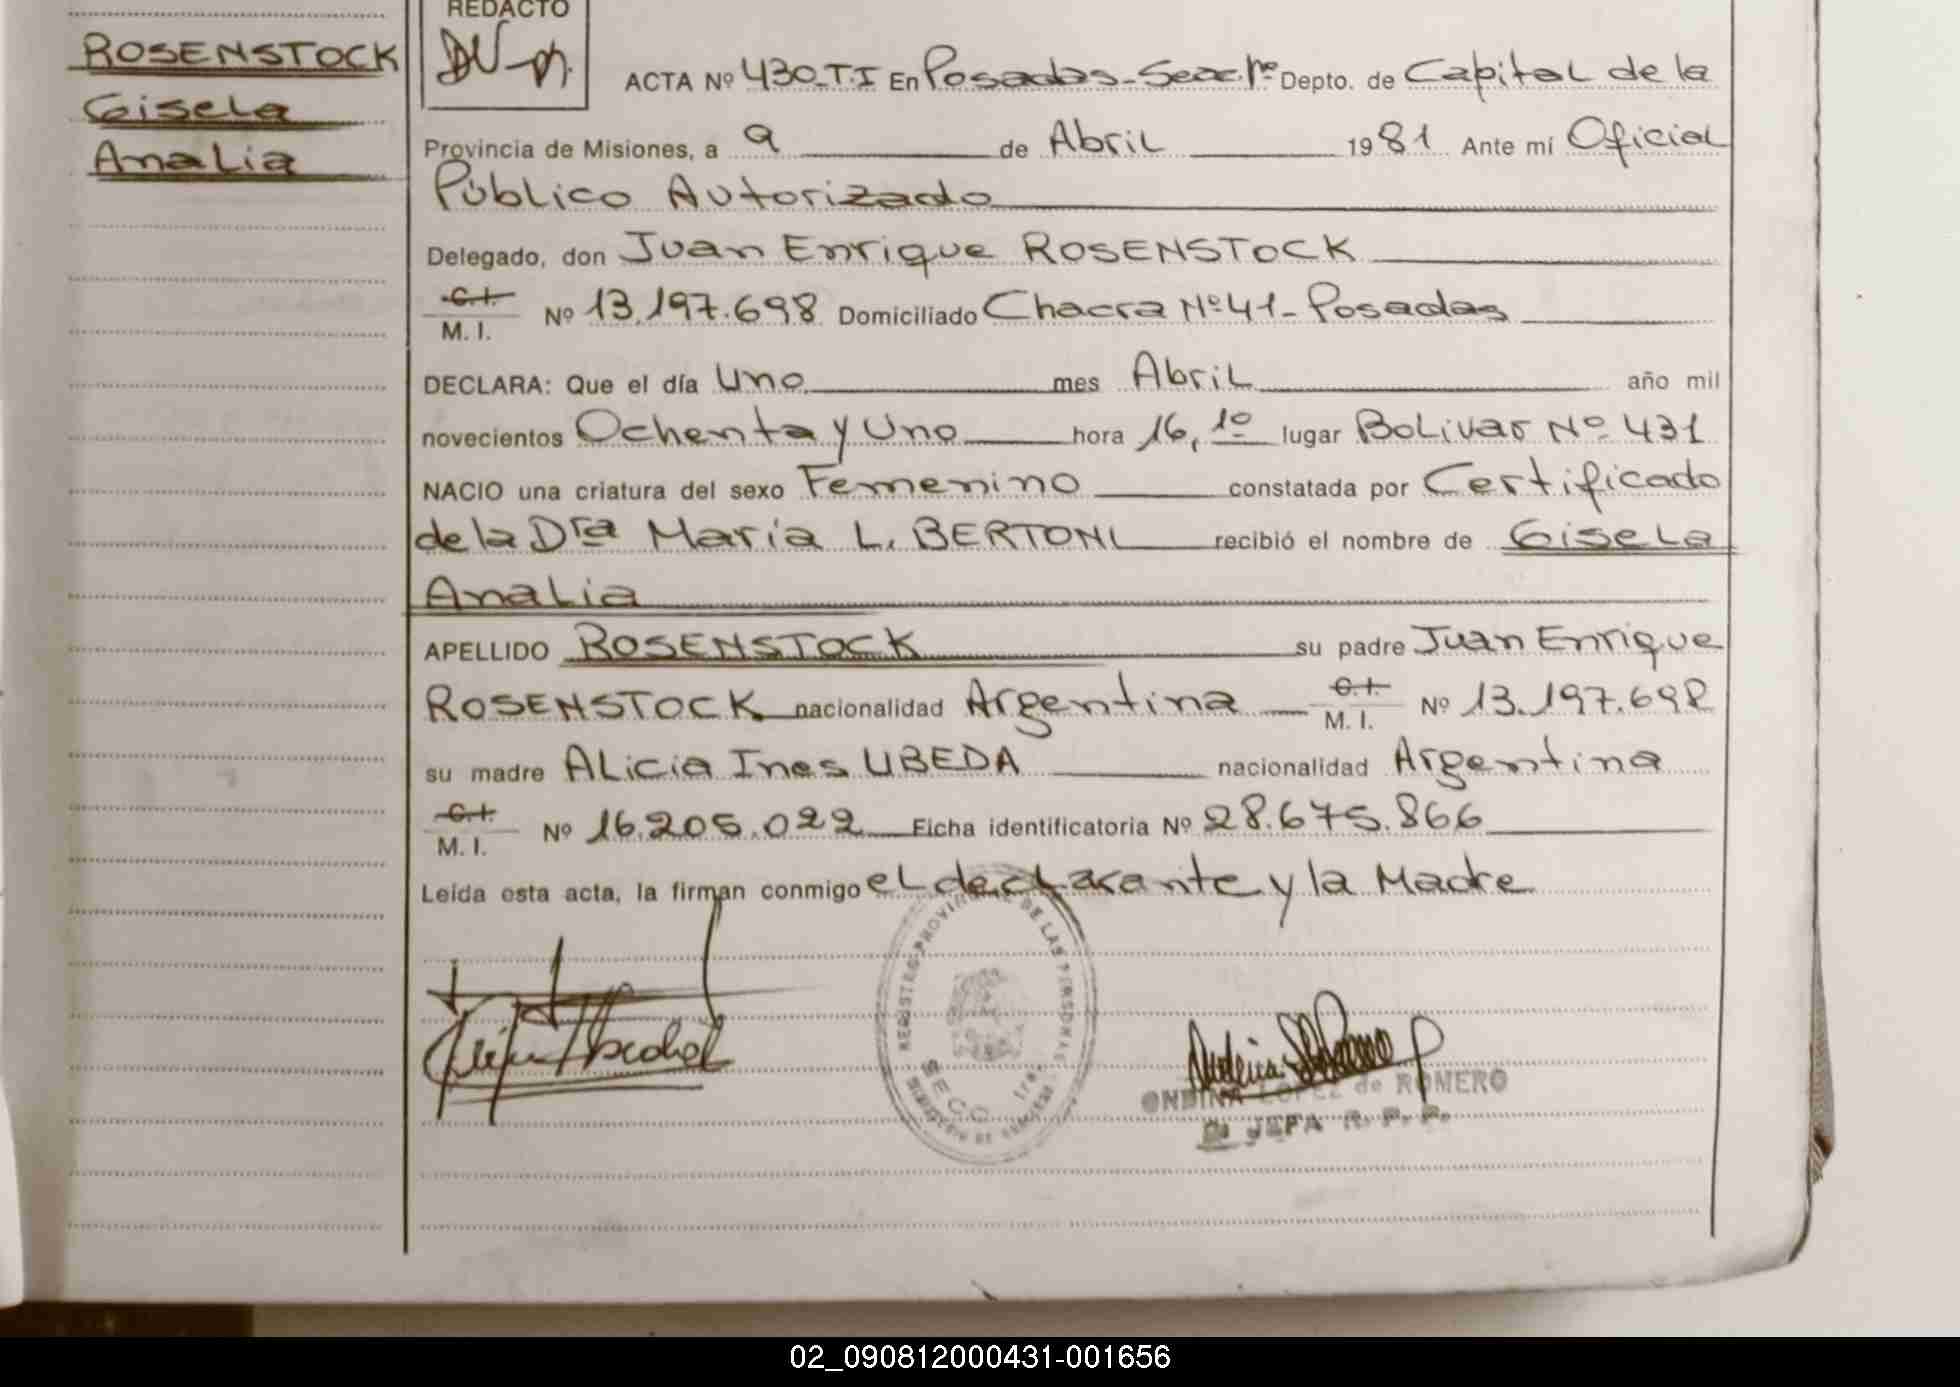 ROSENSTOCK
Gisela
Analia
REDACTO
ACTA Nº 430-T.I En Posadas-Secc.1ra Depto. de Capital de la
Provincia de Misiones, a 9 de Abril 1981 Ante mí Oficial
Público Autorizado
Delegado, don Juan Enrique ROSENSTOCK
C.I.
M. I. Nº 13.197.698 Domiciliado Chacra Nº 41- Posadas
DECLARA: Que el día Uno mes Abril año mil
novecientos Ochenta y Uno hora 16,10 lugar Bolivar Nº 431
NACIO una criatura del sexo Femenino constatada por Certificado
de la Dra María L. BERTONI recibió el nombre de Gisela
Analia
APELLIDO ROSENSTOCK su padre Juan Enrique
ROSENSTOCK nacionalidad Argentina C.I. M. I. Nº 13.197.698
su madre Alicia Ines UBEDA nacionalidad Argentina
C.I.
M. I. Nº 16.205.022 Ficha identificatoria Nº 28.675.866
Leída esta acta, la firman conmigo el declarante y la Madre
REGISTRO PROVINCIAL DE LAS PERSONAS
SECC. 1ra.
ONDINA LOPEZ de ROMERO
JEFA R. P. P.
02_090812000431-001656